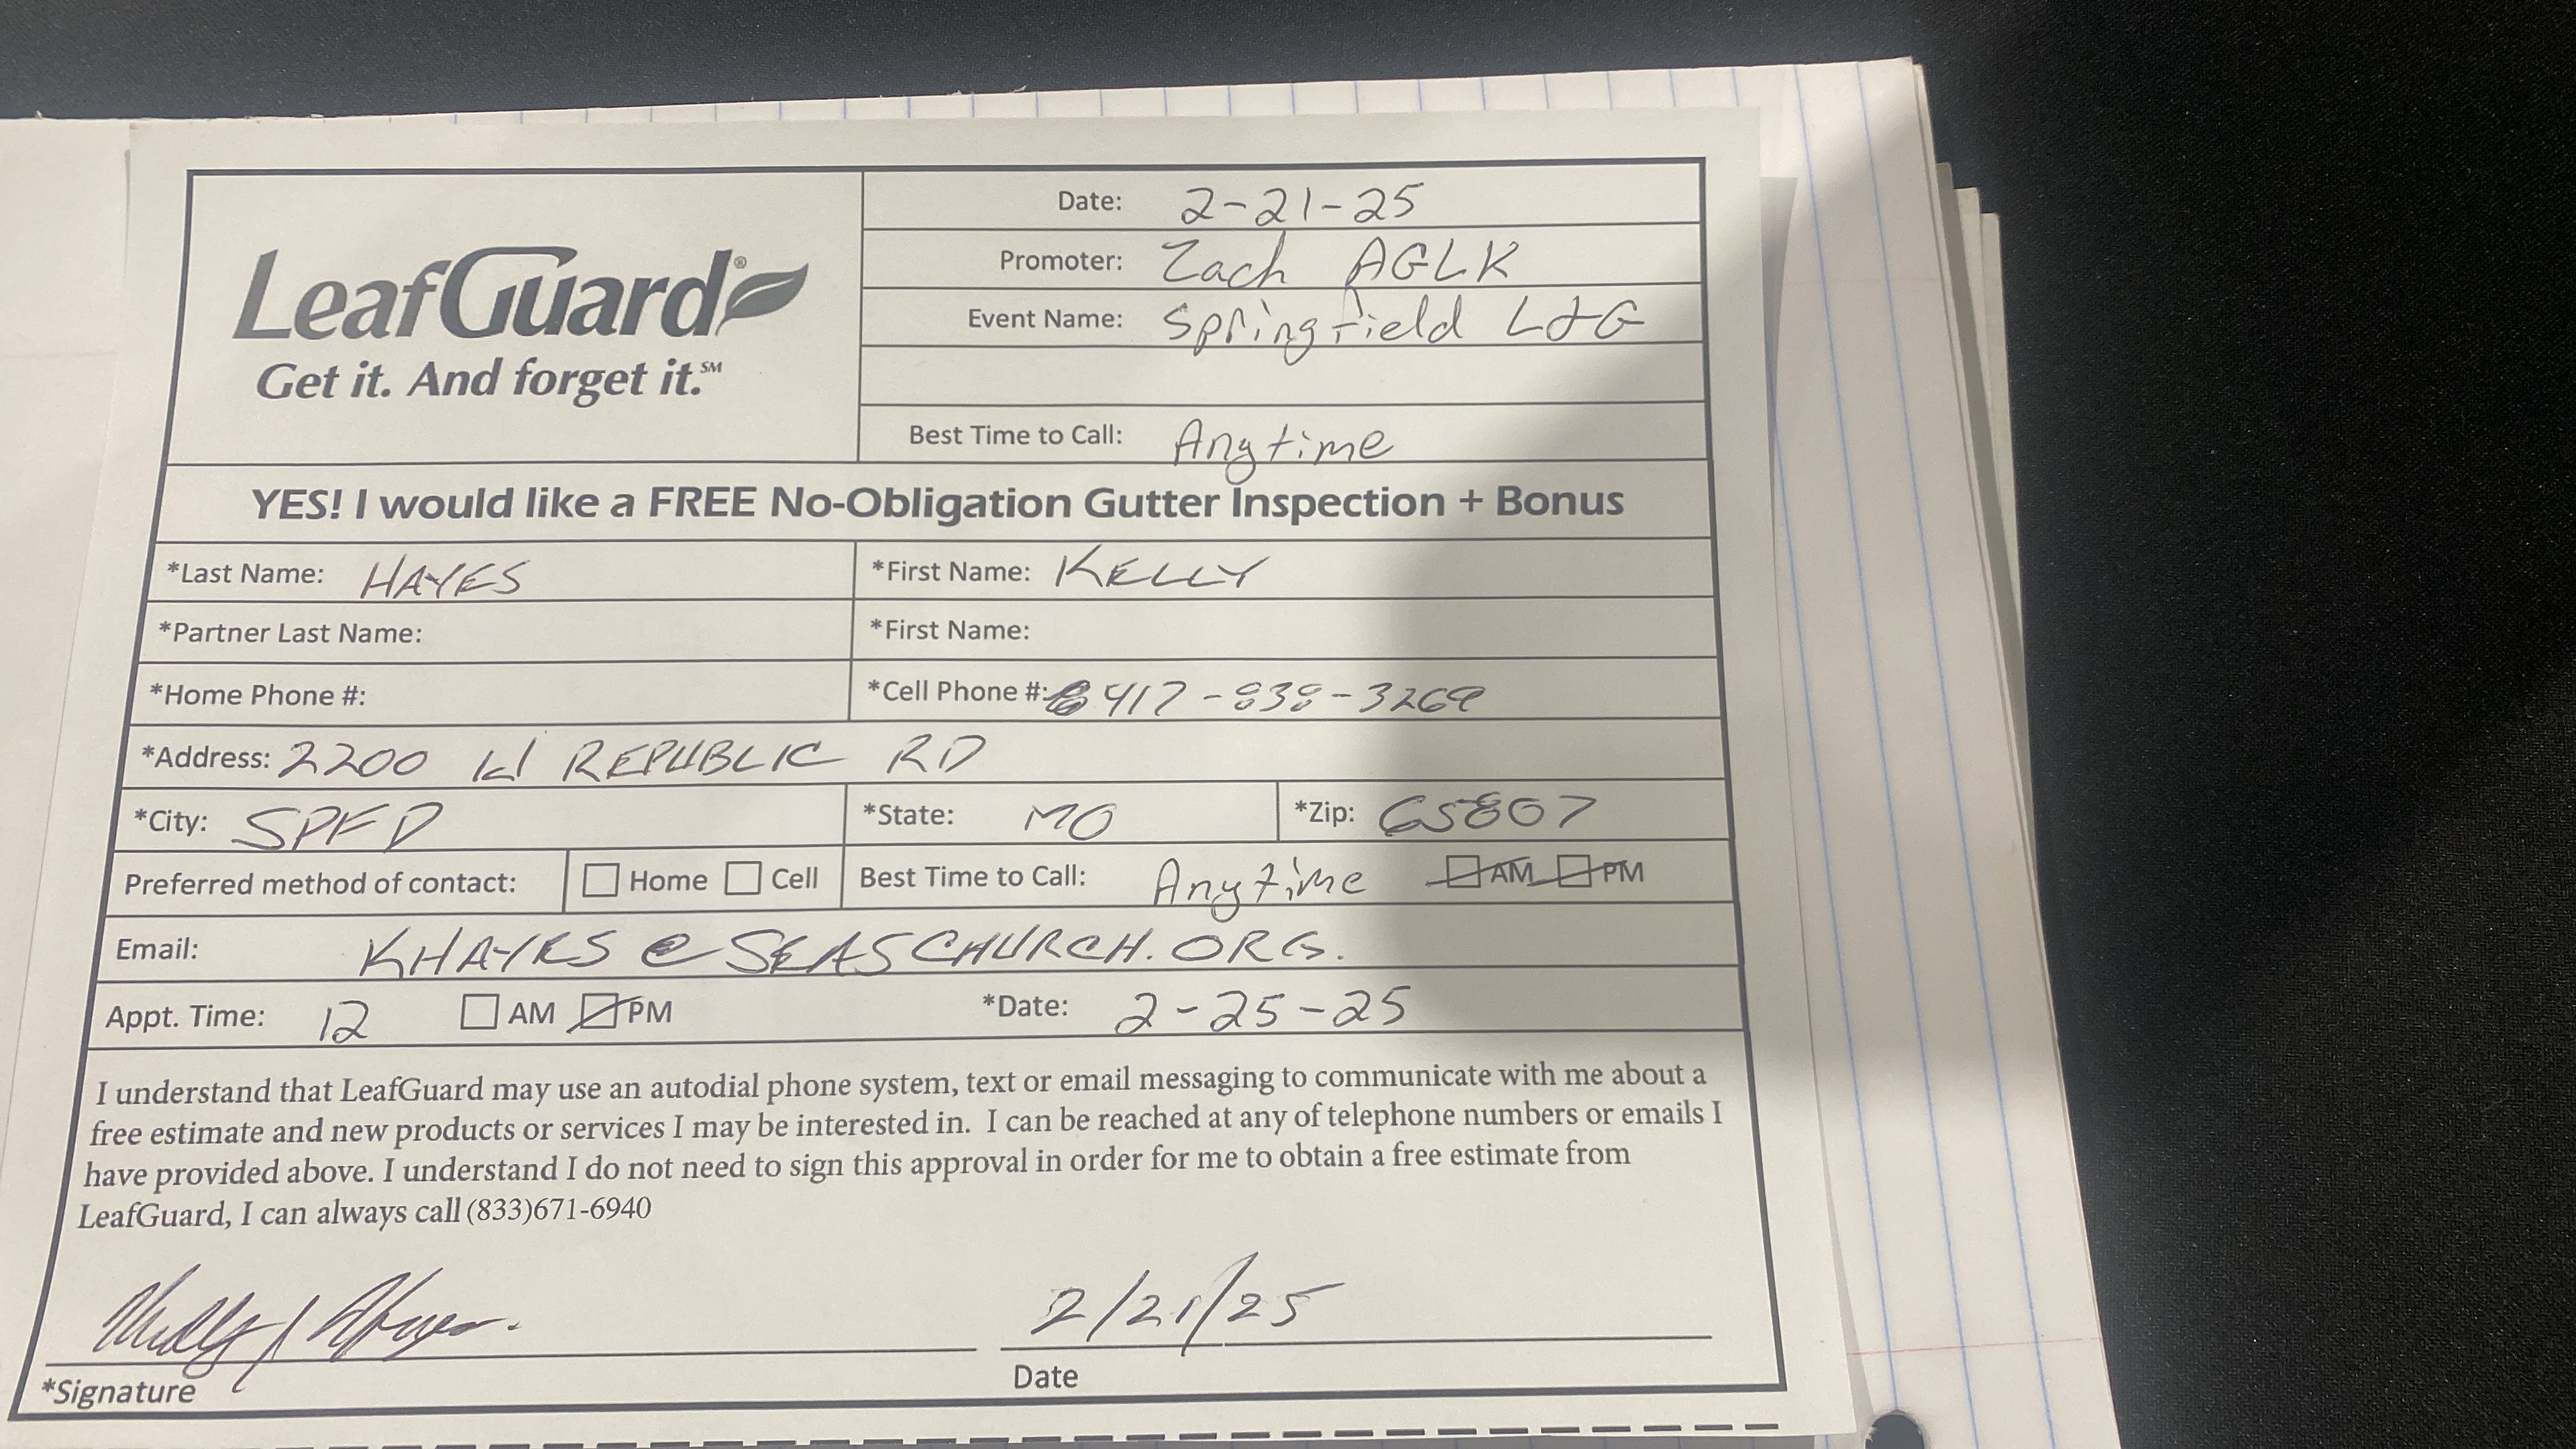 LeafGuard®
Get it. And forget it.℠
Date: 2-21-25
Promoter: Zach AGLK
Event Name: Springfield L+G
Best Time to Call: Anytime
YES! I would like a FREE No-Obligation Gutter Inspection + Bonus
*Last Name: HAYES *First Name: KELLY
*Partner Last Name: *First Name:
*Home Phone #: *Cell Phone #: 417-839-3269
*Address: 2200 W REPUBLIC RD
*City: SPFD *State: MO *Zip: 65807
Preferred method of contact: Home Cell Best Time to Call: Anytime AM PM
Email: KHAYES@SEASCHURCH.ORG.
Appt. Time: 12 AM PM *Date: 2-25-25
I understand that LeafGuard may use an autodial phone system, text or email messaging to communicate with me about a
free estimate and new products or services I may be interested in. I can be reached at any of telephone numbers or emails I
have provided above. I understand I do not need to sign this approval in order for me to obtain a free estimate from
LeafGuard, I can always call (833)671-6940
2/21/25
*Signature Date